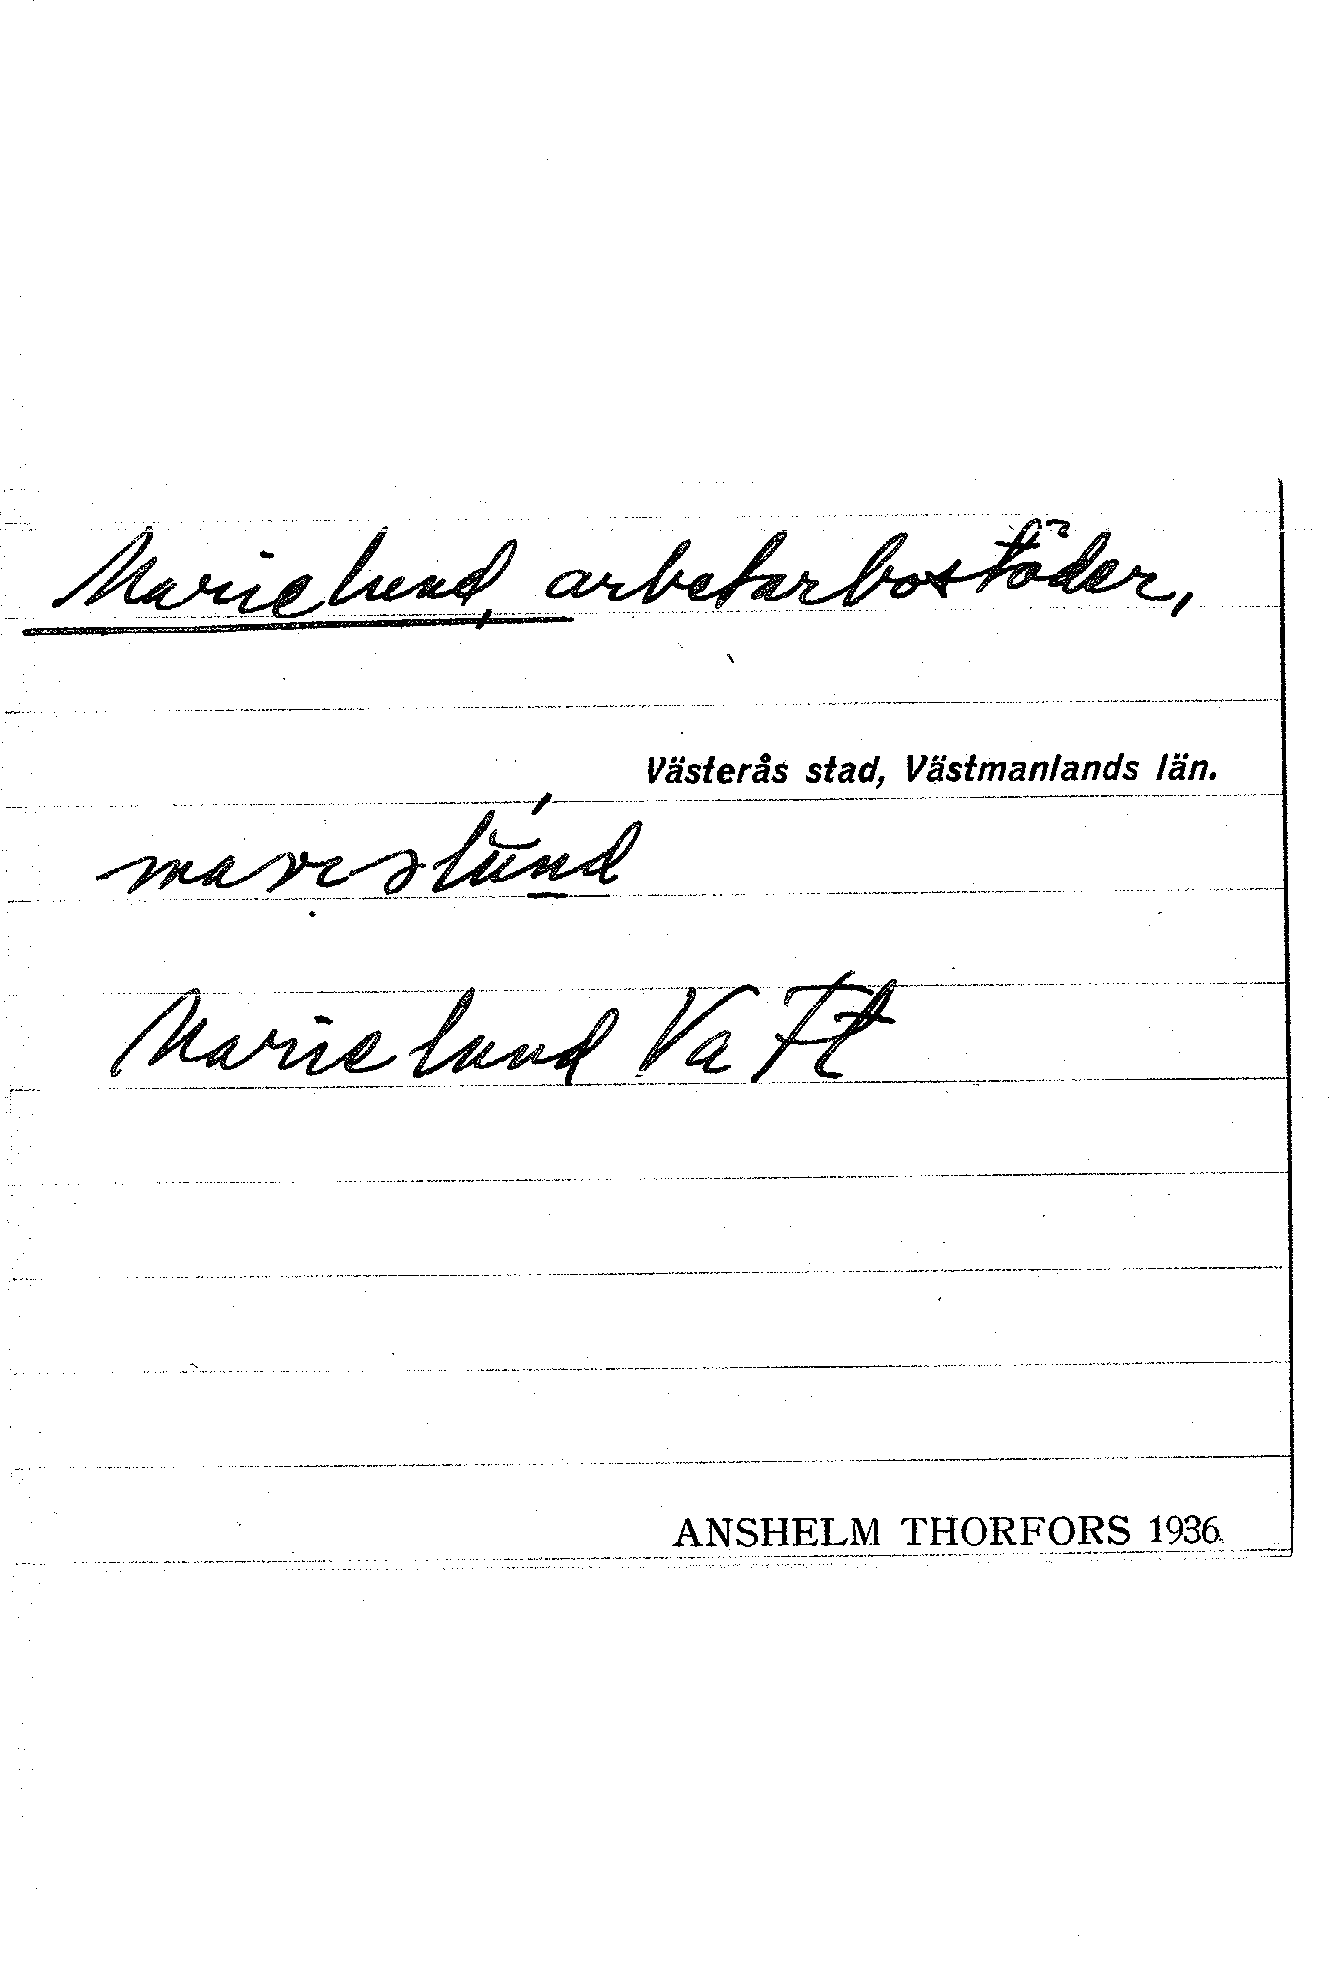 Marielund, arbetarbostäder,
Västerås stad, Västmanlands län.
Marielund Va Ft
ANSHELM THORFORS 1936